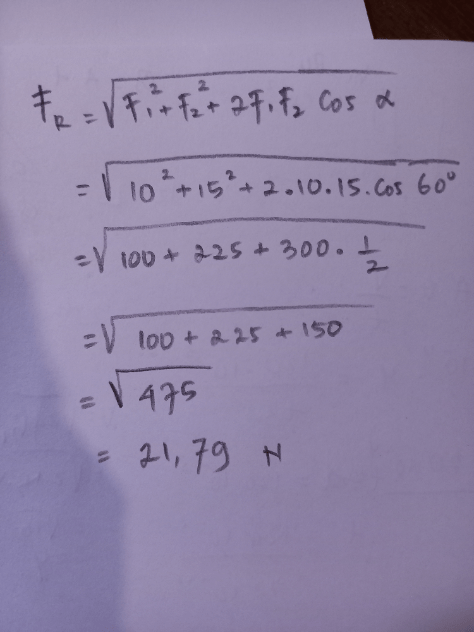 F_R = √F₁² + F₂² + 2F₁F₂ Cos α
= √10² + 15² + 2.10.15.Cos 60°
= √100 + 225 + 300 . 1/2
= √100 + 225 + 150
= √475
= 21,79 N